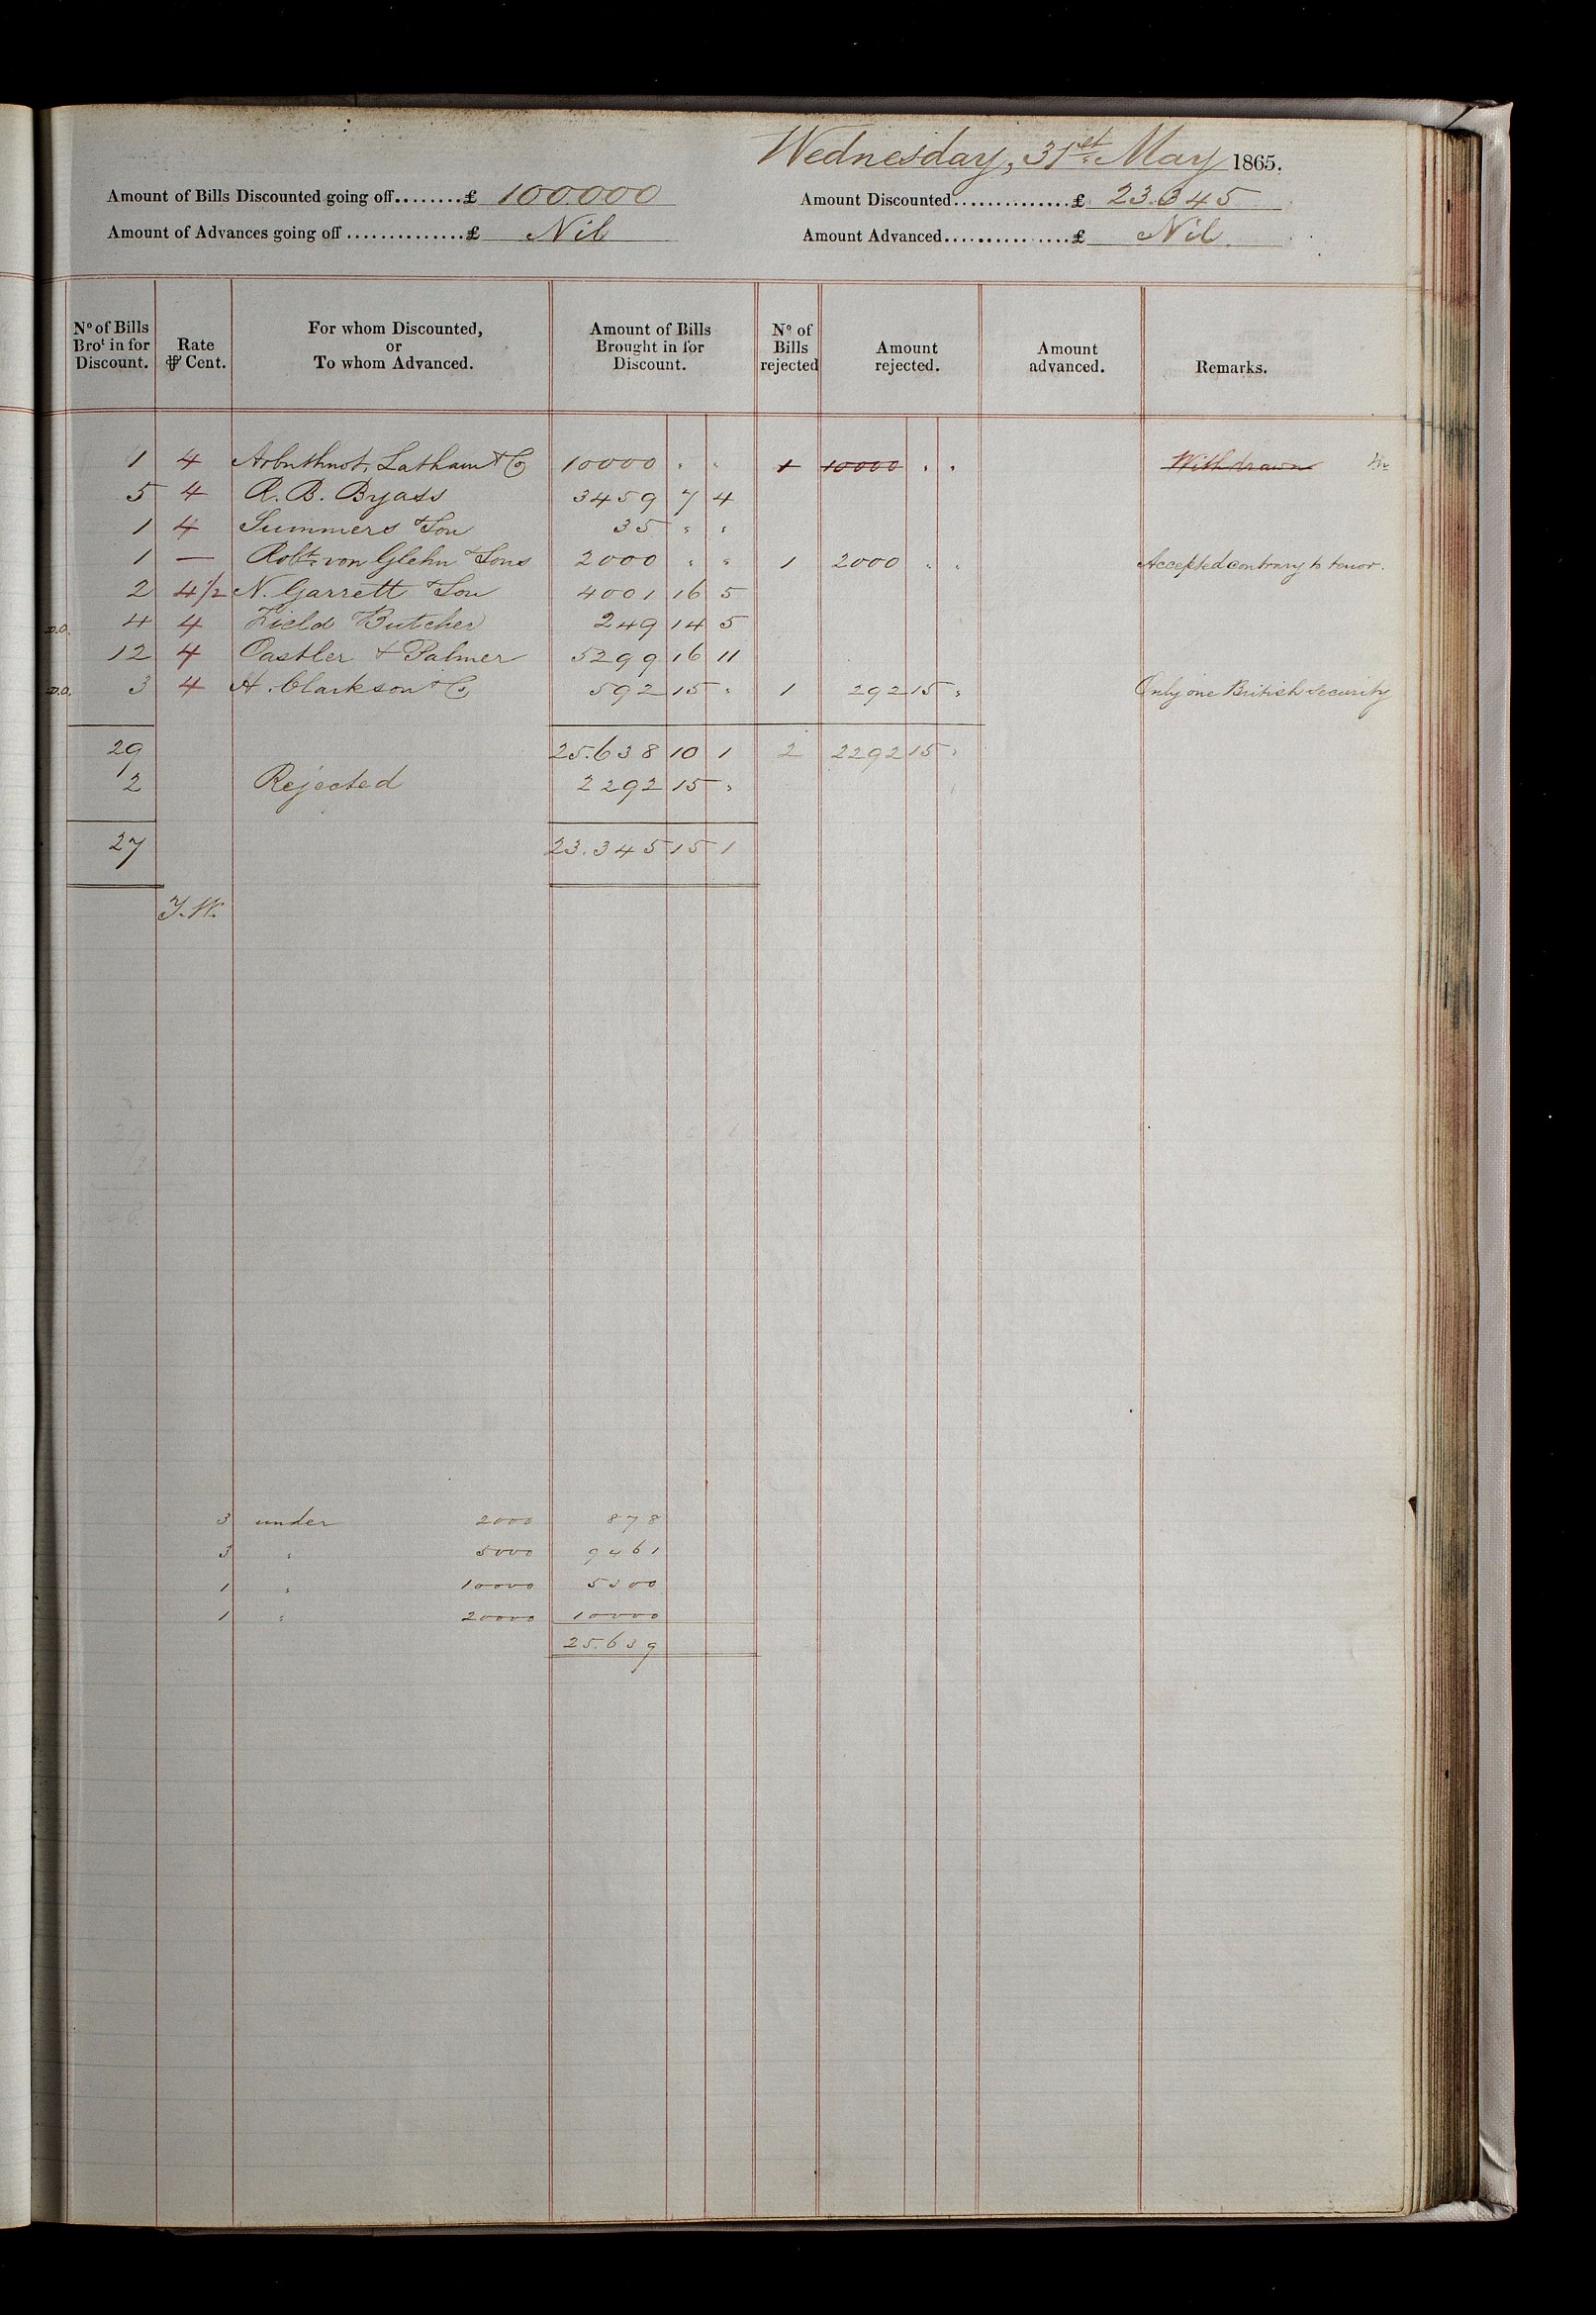 Wednesday, 31st May 1865.
Amount of Bills Discounted going off........£ 100.000 Amount Discounted..............£ 23.345
Amount of Advances going off..............£ Nil Amount Advanced................£ Nil
No of Bills Brot in for Discount. Rate ⅌ Cent. For whom Discounted, or To whom Advanced. Amount of Bills Brought in for Discount. No of Bills rejected Amount rejected. Amount advanced. Remarks.
1 4 Arbuthnot, Latham & Co 10000 " " 1 10000 " " Withdrawn
5 4 R. B. Byass 3459 7 4
1 4 Summers & Son 35 " "
1 — Robt von Glehn & Sons 2000 " " 1 2000 " " Accepted contrary to tenor.
2 4½ N. Garrett & Son 4001 16 5
D.O. 4 4 Field & Butcher 249 14 5
12 4 Oastler & Palmer 5299 16 11
D.O. 3 4 H. Clarkson & Co 592 15 " 1 292 15 " Only one British security
29 25.638 10 1 2 2292 15 "
2 Rejected 2292 15 "
27 23.345 15 1
3 under 2000 878
3 " 5000 9461
1 " 10000 5300
1 " 20000 10000
25.639